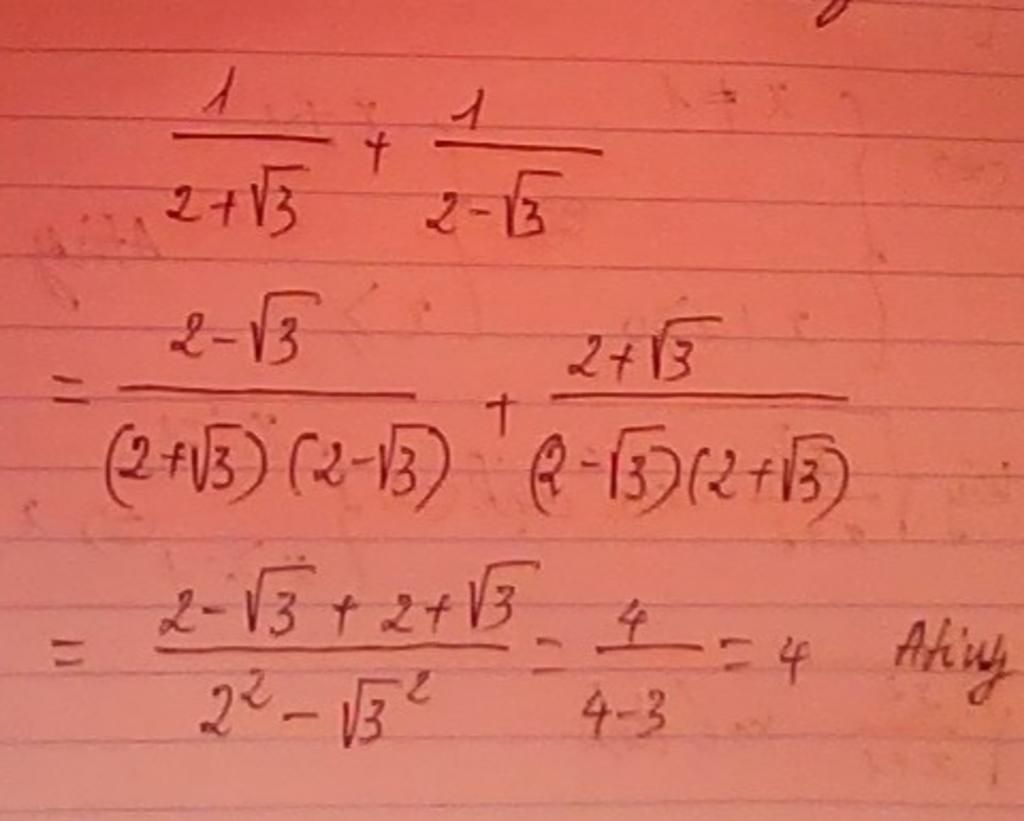 1/(2+√3) + 1/(2-√3)
= (2-√3)/((2+√3)(2-√3)) + (2+√3)/((2-√3)(2+√3))
= (2-√3+2+√3)/(2²-√3²) = 4/(4-3) = 4